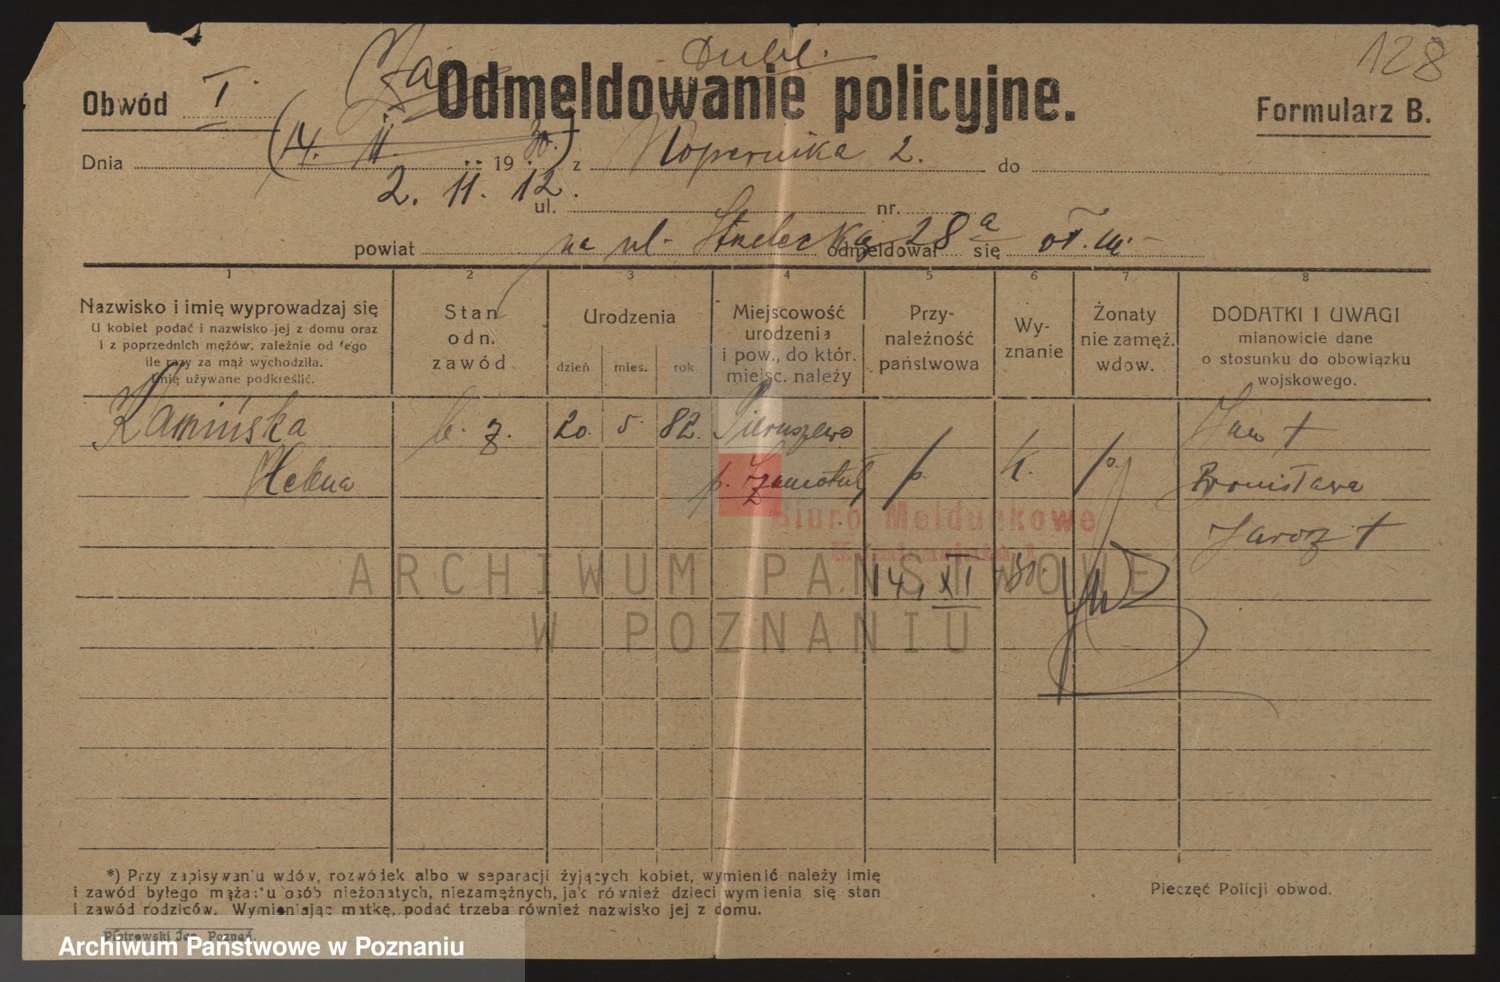 Dubl. 128
Obwód I. Odmeldowanie policyjne. Formularz B.
Dnia (14. 11. 1930.) z Kopernika 2. do
2. 11. 12.
ul. nr.
powiat na ul. Strzelecką 28a odmeldował się
1 2 3 4 5 6 7 8
Nazwisko i imię wyprowadzaj się
U kobiet podać i nazwisko jej z domu oraz
i z poprzednich mężów, zależnie od tego
ile razy za mąż wychodziła.
Imię używane podkreślić.
Stan
odn.
zawód
Urodzenia
dzień mies. rok
Miejscowość
urodzenia
i pow., do któr.
miejsc. należy
Przy-
należność
państwowa
Wy-
znanie
Żonaty
nie zamęż.
wdow.
DODATKI I UWAGI
mianowicie dane
o stosunku do obowiązku
wojskowego.
Kamińska b. z. 20. 5. 82. Pierwszewo Jan +
Helena p. Szamotuły p. k. p. Bronisława
Biuro Meldunkowe
Jaroz +
14. XI 30.
ARCHIWUM PAŃSTWOWE
W POZNANIU
*) Przy zapisywaniu wdów, rozwódek albo w separacji żyjących kobiet, wymienić należy imię
i zawód byłego męża: u osób nieżonatych, niezamężnych, jak również dzieci wymienia się stan
i zawód rodziców. Wymieniając matkę, podać trzeba również nazwisko jej z domu.
Pieczęć Policji obwod.
Piotrowski Jan, Poznań.
Archiwum Państwowe w Poznaniu